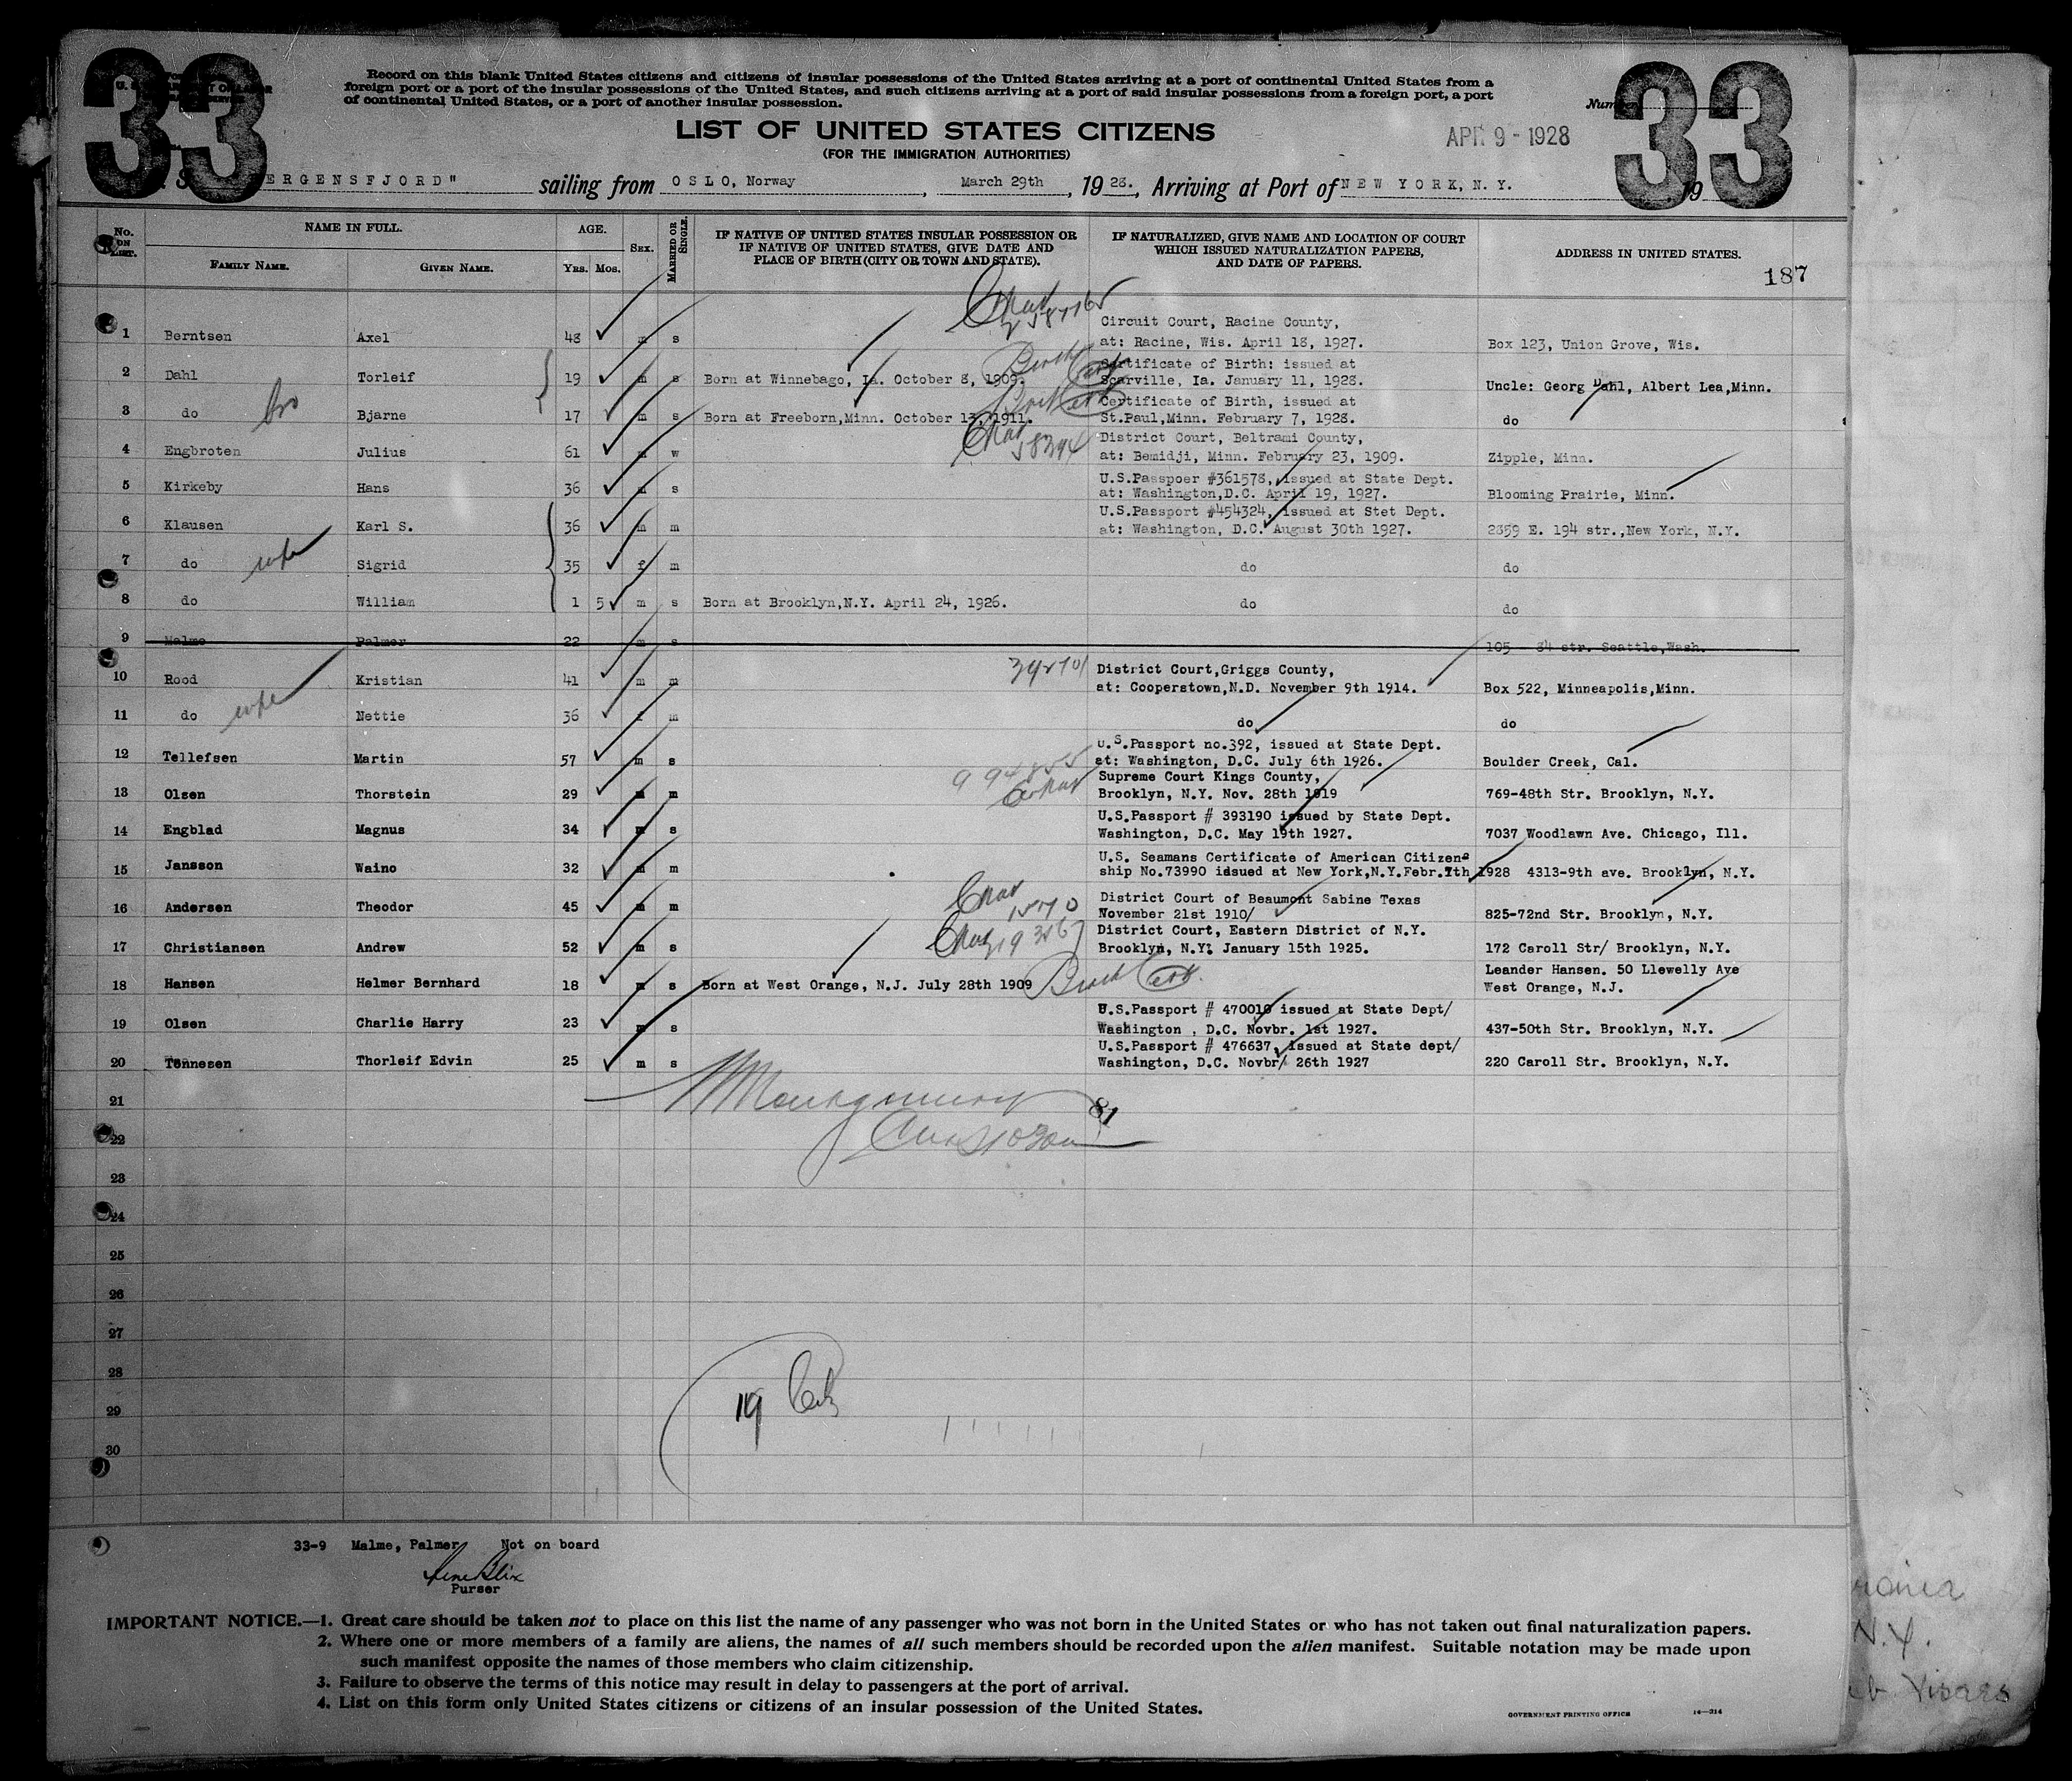 33
33
Record on this blank United States citizens and citizens of insular possessions of the United States arriving at a port of continental United States from a
foreign port or a port of the insular possessions of the United States, and such citizens arriving at a port of said insular possessions from a foreign port, a port
of continental United States, or a port of another insular possession.
LIST OF UNITED STATES CITIZENS
(FOR THE IMMIGRATION AUTHORITIES)
APR 9 - 1928
ERGENSFJORD" sailing from OSLO, Norway, March 29th, 1928., Arriving at Port of NEW YORK, N.Y. 19
No. ON LIST. NAME IN FULL. FAMILY NAME. GIVEN NAME. AGE. YRS. MOS. SEX. MARRIED OR SINGLE. IF NATIVE OF UNITED STATES INSULAR POSSESSION OR IF NATIVE OF UNITED STATES, GIVE DATE AND PLACE OF BIRTH (CITY OR TOWN AND STATE). IF NATURALIZED, GIVE NAME AND LOCATION OF COURT WHICH ISSUED NATURALIZATION PAPERS, AND DATE OF PAPERS. ADDRESS IN UNITED STATES.
187
1 Berntsen Axel 48 m s Circuit Court, Racine County,
at: Racine, Wis. April 18, 1927. Box 123, Union Grove, Wis.
2 Dahl Torleif 19 m s Born at Winnebago, Ia. October 8, 1909. Birth Cert Certificate of Birth: issued at
Scarville, Ia. January 11, 1928. Uncle: Georg Dahl, Albert Lea,Minn.
3 do bro Bjarne 17 m s Born at Freeborn,Minn. October 13, 1911. Birth Cert Certificate of Birth, issued at
St.Paul,Minn. February 7, 1928. do
4 Engbroten Julius 61 m w District Court, Beltrami County,
at: Bemidji, Minn. February 23, 1909. Zipple, Minn.
5 Kirkeby Hans 36 m s U.S.Passpoer #361578, issued at State Dept.
at: Washington,D.C. April 19, 1927. Blooming Prairie, Minn.
6 Klausen Karl S. 36 m m U.S.Passport #454324, issued at Stet Dept.
at: Washington, D.C. August 30th 1927. 2359 E. 194 str.,New York, N.Y.
7 do wife Sigrid 35 f m do do
8 do William 1 5 m s Born at Brooklyn,N.Y. April 24, 1926. do do
9 Malme Palmer 22 m s 105 - 84 str. Seattle,Wash.
10 Rood Kristian 41 m m District Court,Griggs County,
at: Cooperstown,N.D. November 9th 1914. Box 522, Minneapolis,Minn.
11 do wife Nettie 36 f m do do
12 Tellefsen Martin 57 m s U.S.Passport no.392, issued at State Dept.
at: Washington, D.C. July 6th 1926. Boulder Creek, Cal.
13 Olsen Thorstein 29 m m Supreme Court Kings County,
Brooklyn, N.Y. Nov. 28th 1919 769-48th Str. Brooklyn, N.Y.
14 Engblad Magnus 34 m s U.S.Passport # 393190 issued by State Dept.
Washington, D.C. May 19th 1927. 7037 Woodlawn Ave. Chicago, Ill.
15 Jansson Waino 32 m m U.S. Seamans Certificate of American Citizen-
ship No.73990 issued at New York,N.Y.Febr.7th 1928 4313-9th ave. Brooklyn, N.Y.
16 Andersen Theodor 45 m m District Court of Beaumont Sabine Texas
November 21st 1910/ 825-72nd Str. Brooklyn, N.Y.
17 Christiansen Andrew 52 m s District Court, Eastern District of N.Y.
Brooklyn, N.Y: January 15th 1925. 172 Caroll Str/ Brooklyn, N.Y.
18 Hansen Helmer Bernhard 18 m s Born at West Orange, N.J. July 28th 1909 Birth Cert. Leander Hansen. 50 Llewelly Ave
West Orange, N.J.
19 Olsen Charlie Harry 23 m s U.S.Passport # 470019 issued at State Dept/
Washington , D.C. Novbr. 1st 1927. 437-50th Str. Brooklyn, N.Y.
20 Tønnesen Thorleif Edvin 25 m s U.S.Passport # 476637, issued at State dept/
Washington, D.C. Novbr/ 26th 1927 220 Caroll Str. Brooklyn, N.Y.
21 Montgomery 81
22
23
24
25
26
27
28
29 19
30
33-9 Malme, Palmer Not on board
Purser
IMPORTANT NOTICE.—1. Great care should be taken not to place on this list the name of any passenger who was not born in the United States or who has not taken out final naturalization papers.
2. Where one or more members of a family are aliens, the names of all such members should be recorded upon the alien manifest. Suitable notation may be made upon
such manifest opposite the names of those members who claim citizenship.
3. Failure to observe the terms of this notice may result in delay to passengers at the port of arrival.
4. List on this form only United States citizens or citizens of an insular possession of the United States.
GOVERNMENT PRINTING OFFICE 14—314
N.Y.